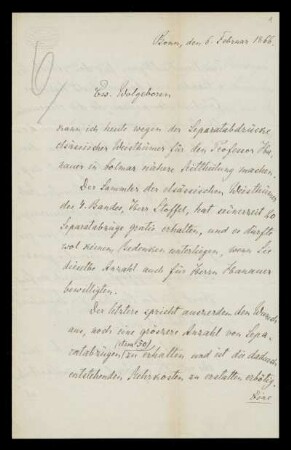 Bonn, den 6. Februar 1866.
Ew. Wolgeboren
kann ich heute wegen der Separatabdrücke
elsässischer Weisthümer für den Professor Ha-
nauer in Colmar nähere Mittheilung machen.
Der Sammler der elsässischen Weisthümer
des 4. Bandes, Herr Stoffel, hat seinerzeit 60
Separatabzüge gratis erhalten, und es dürfte
wol keinem Bedenken unterliegen, wenn Sie
dieselbe Anzahl auch für Herrn Hanauer
bewilligten.
Der letztere spricht ausserdem den Wunsch
aus, noch eine grössere Anzahl von Sepa-
ratabzügen (etwa 30) zu erhalten und ist die dadurch
entstehenden Mehrkosten zu erstatten erbötig.